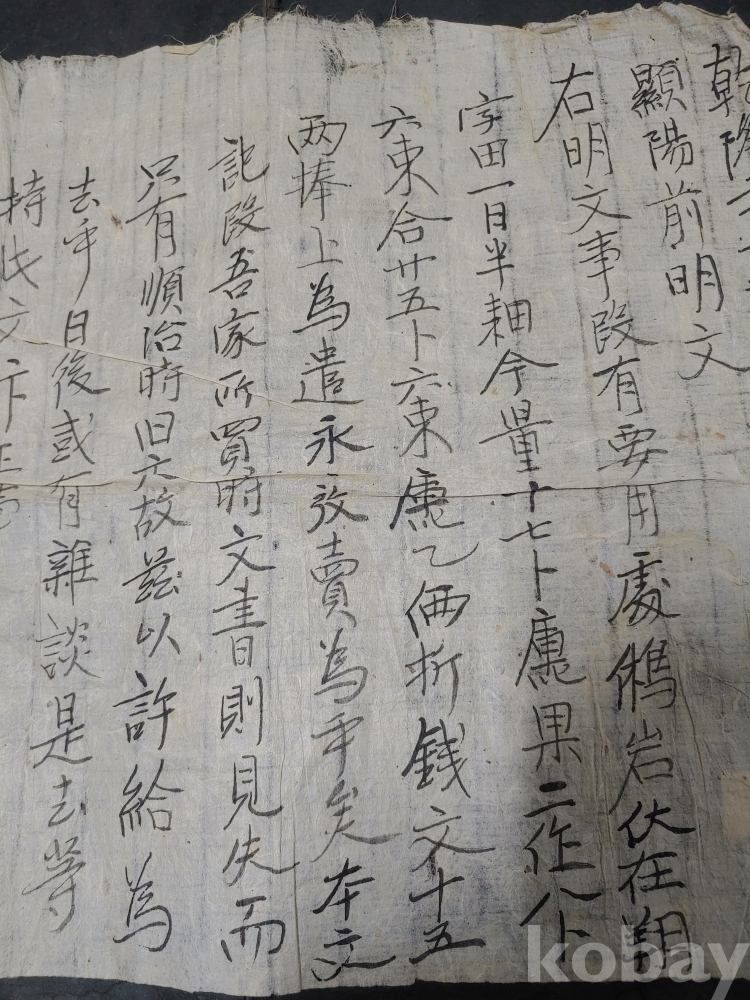 乾隆
顯陽前明文
右明文事段有要用處鵂岩伏在翔
字田一日半耕今量十七卜庫果二作八卜
六束合廿五卜六束庫乙価折錢文十五
両捧上為遣永放賣為乎矣本文
記段吾家所買時文書則見失而
只有順治時旧文故茲以許給為
去乎日後或有雜談是去等
持此文卞正
kobay